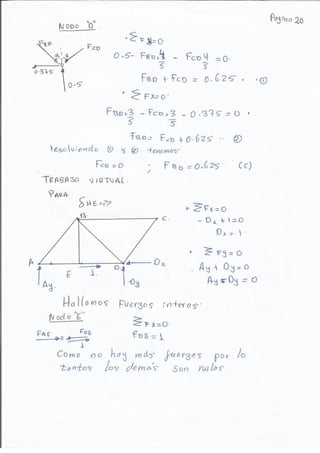 Página 20
NODO "D"
• ΣFy=0
FBD
FCD
0.5 - FBD.4/5 - FCD 4/5 = 0.
0.375
0.5
FBD + FCD = 0.625 - ①
• ΣFX=0.
FBD.3/5 - FCD.3/5 - 0.375 = 0 •
FBD = FCD + 0.625 .. ②
resolviendo ① y ② tenemos.
FCD = 0 ; FBD = 0.625 (C)
TRABAJO VIRTUAL.
PARA
δHE =??
B
C.
• ΣFx=0
- Dx + 1 = 0
Dx = 1
A
E
1.
D
Dx
Ay.
Dy
• ΣFy=0
Ay + Dy = 0
Ay = Dy = 0
Hallamos fuerzas internas.
Nodo "E"
FAE
FDE
1
ΣFx=0
FDE = 1
Como no hay más fuerzas por lo
tantos los demás son nulas.